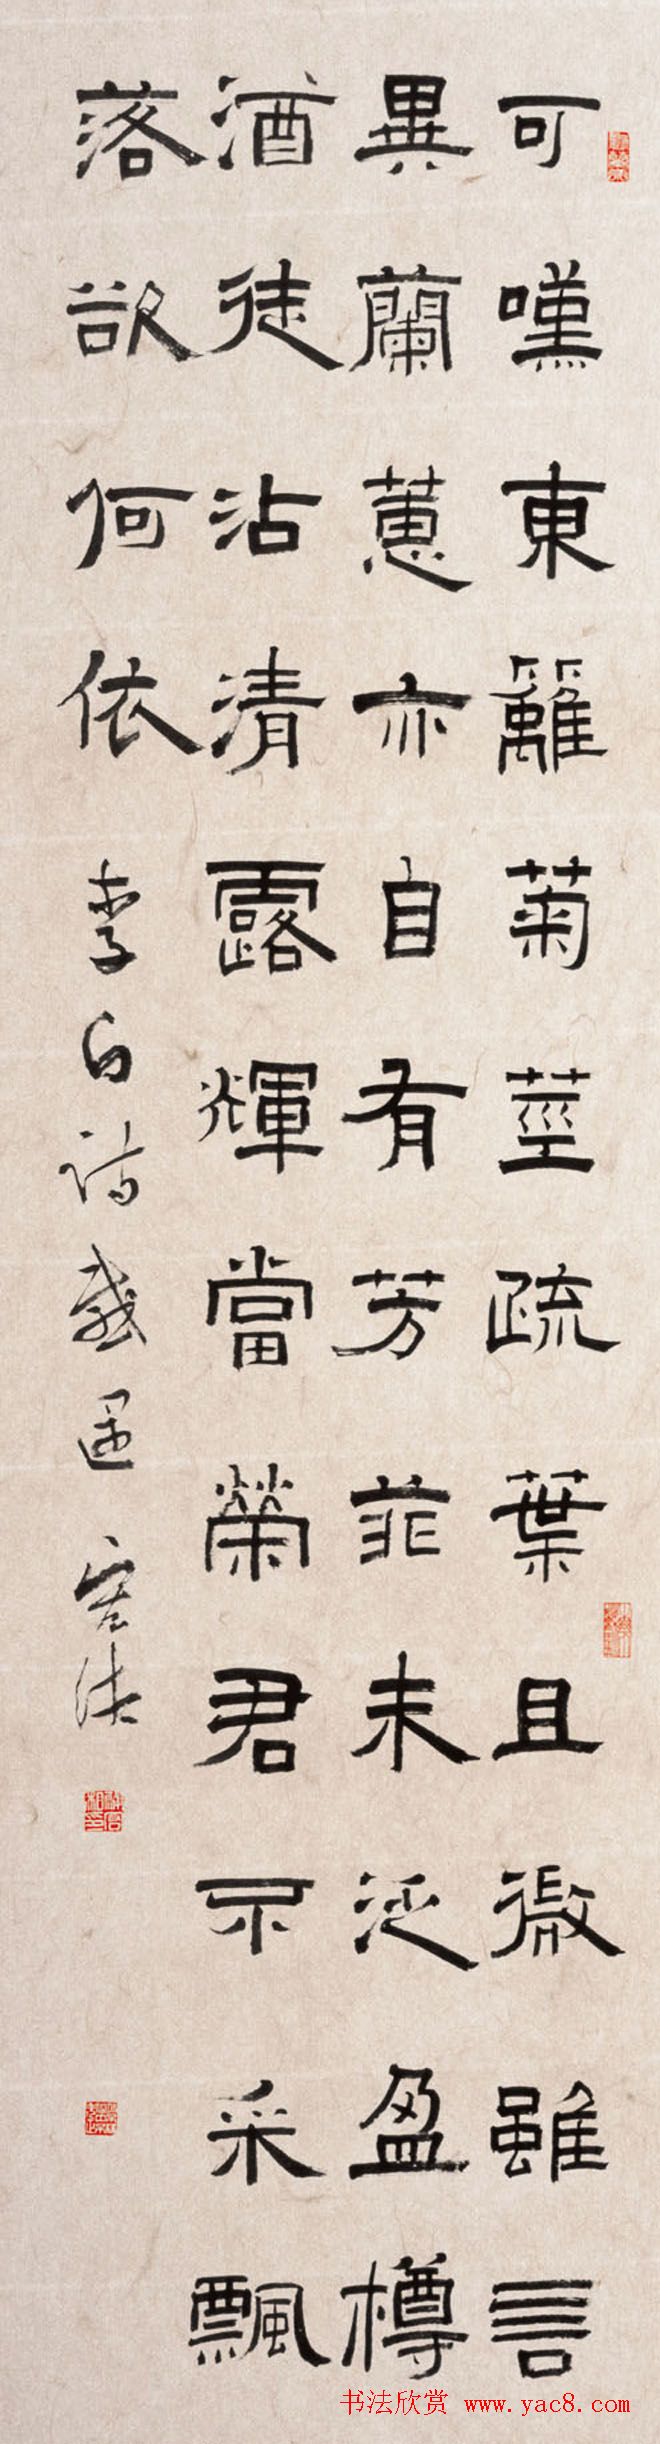 可嘆東籬菊莖疏葉且微雖言
異蘭蕙亦自有芳菲未泛盈樽
酒徒沾清露輝當榮君不采飄
落欲何依 李白詩感遇
书法欣赏 www.yac8.com